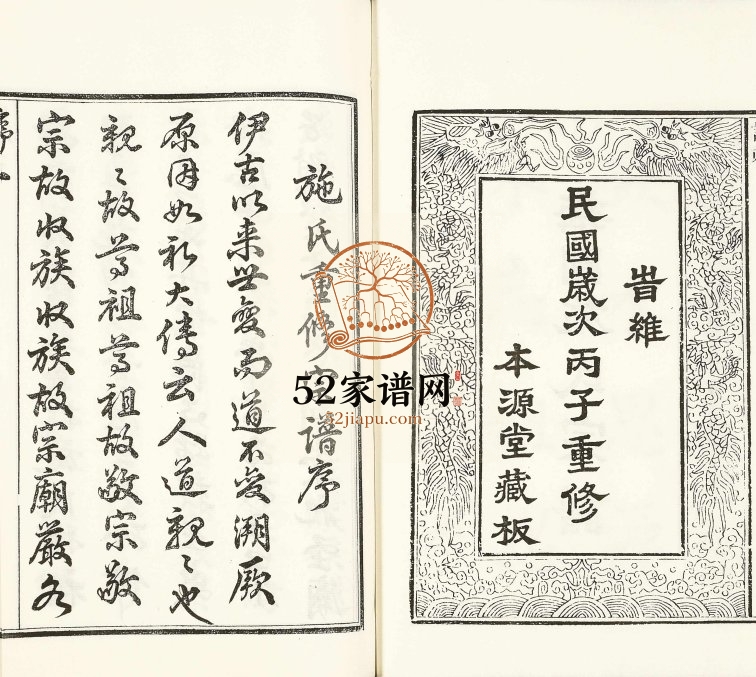 旹維
民國歲次丙子重修
本源堂藏板
施氏重修宗譜序
伊古以来世變而道不变溯厥
原因如礼大傳云人道親〻也
親〻故尊祖尊祖故敬宗敬
宗故收族收族故宗廟嚴各
52家谱网
52jiapu.com